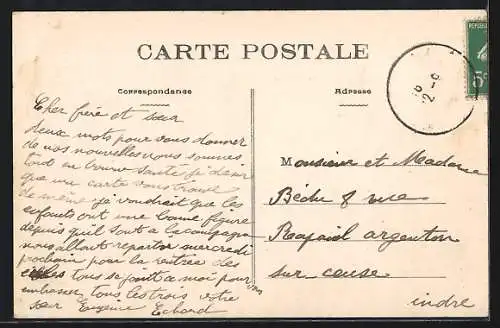 CARTE POSTALE
Correspondance
Adresse
Cher frère et sœur
deux mots pour vous donner
de nos nouvelles nous sommes
tout en bonne santé je désir
que un carte vous trouve
de même je voudrait que les
enfants ont une bonne figure
depuis qu'il sont a la compagne
nous allont repartor mercredi
prochain pour la rentrée des
tous se joint a moi pour
embrasser tous les trois votre
sœur Eugence Echard
Monsieur et Madame
Béchu 8 rue
Raspail argenton
sur creuse
indre
5c